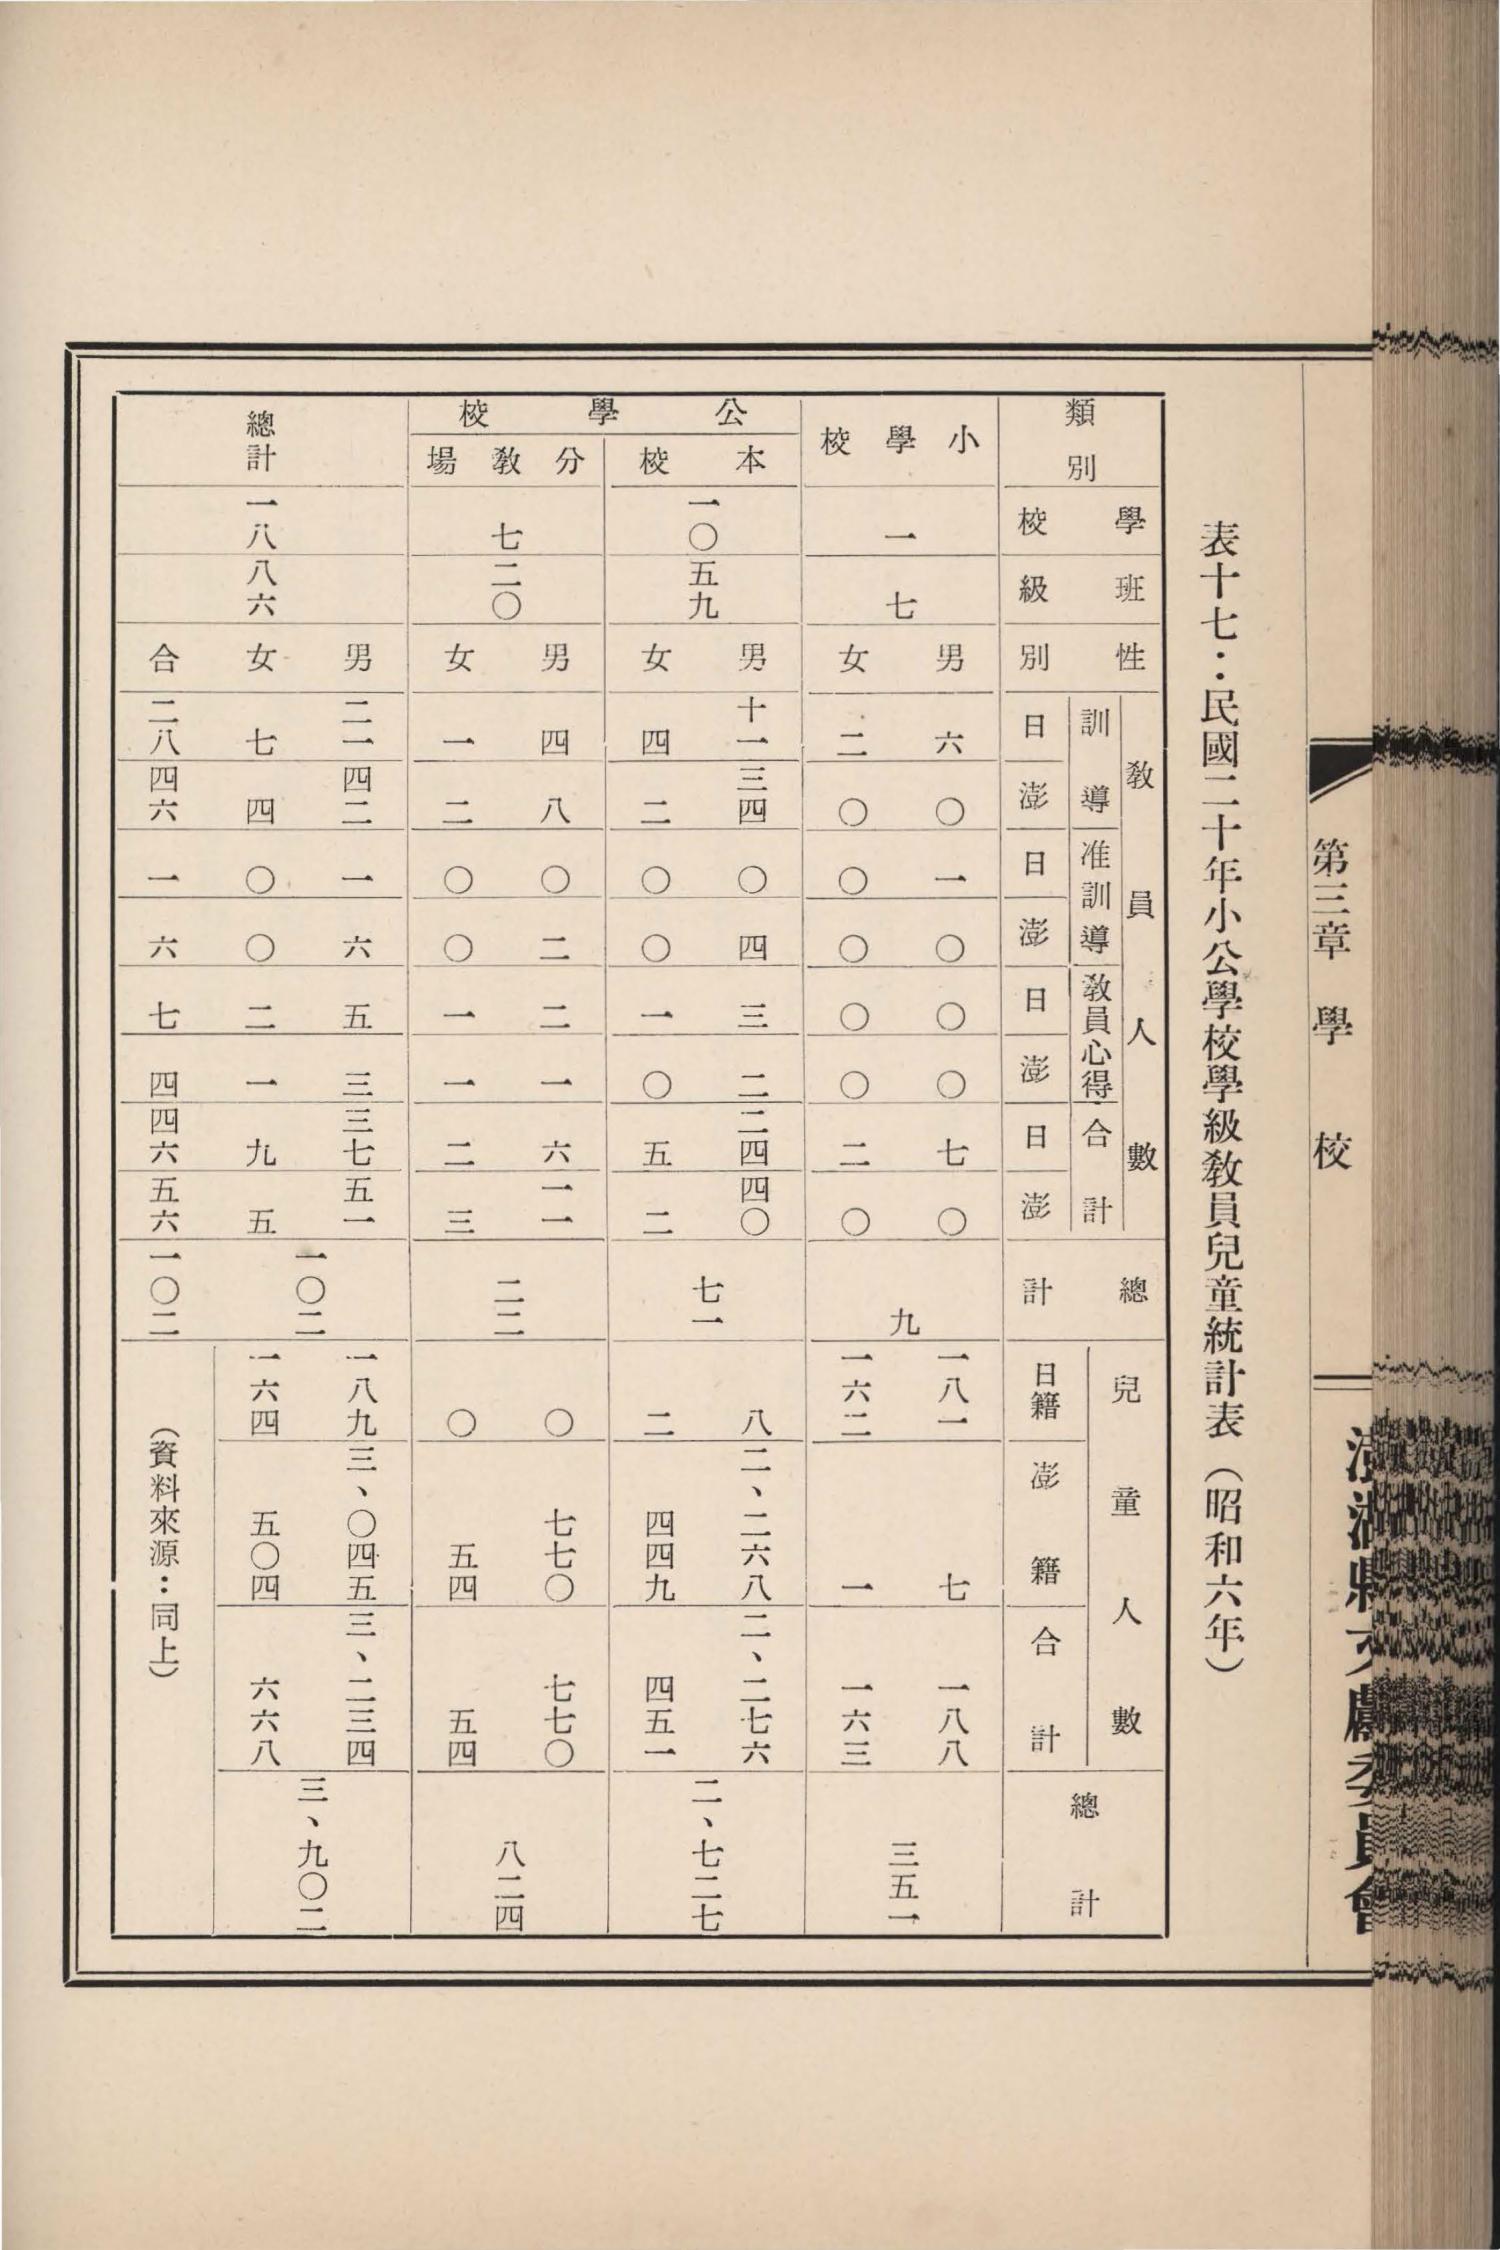 第三章　學　校
澎湖縣文獻委員會
表十七：民國二十年小公學校學級教員兒童統計表（昭和六年）
類別
學校
班級
性別
教員人數
訓導
日
澎
准訓導
日
澎
教員心得
日
澎
合計
日
澎
總計
兒童人數
日籍
澎籍
合計
總計
小學校
一
七
男
六
〇
一
〇
〇
〇
七
〇
女
二
〇
〇
〇
〇
〇
二
〇
九
一八一
七
一八八
一六二
一
一六三
三五一
公學校
本校
一〇
五九
男
十一
三四
〇
四
三
二
二四
四〇
女
四
二
〇
〇
一
〇
五
二
七一
八
二、二六八
二、二七六
二
四四九
四五一
二、七二七
分教場
七
二〇
男
四
八
〇
二
二
一
六
一一
女
一
二
〇
〇
一
一
二
三
二二
〇
七七〇
七七〇
〇
五四
五四
八二四
總計
一八
八六
男
二一
四二
一
六
五
三
三七
五一
女
七
四
〇
〇
二
一
九
五
一〇二
一八九
三、〇四五
三、二三四
一六四
五〇四
六六八
三、九〇二
合
二八
四六
一
六
七
四
四六
五六
一〇二
（資料來源：同上）